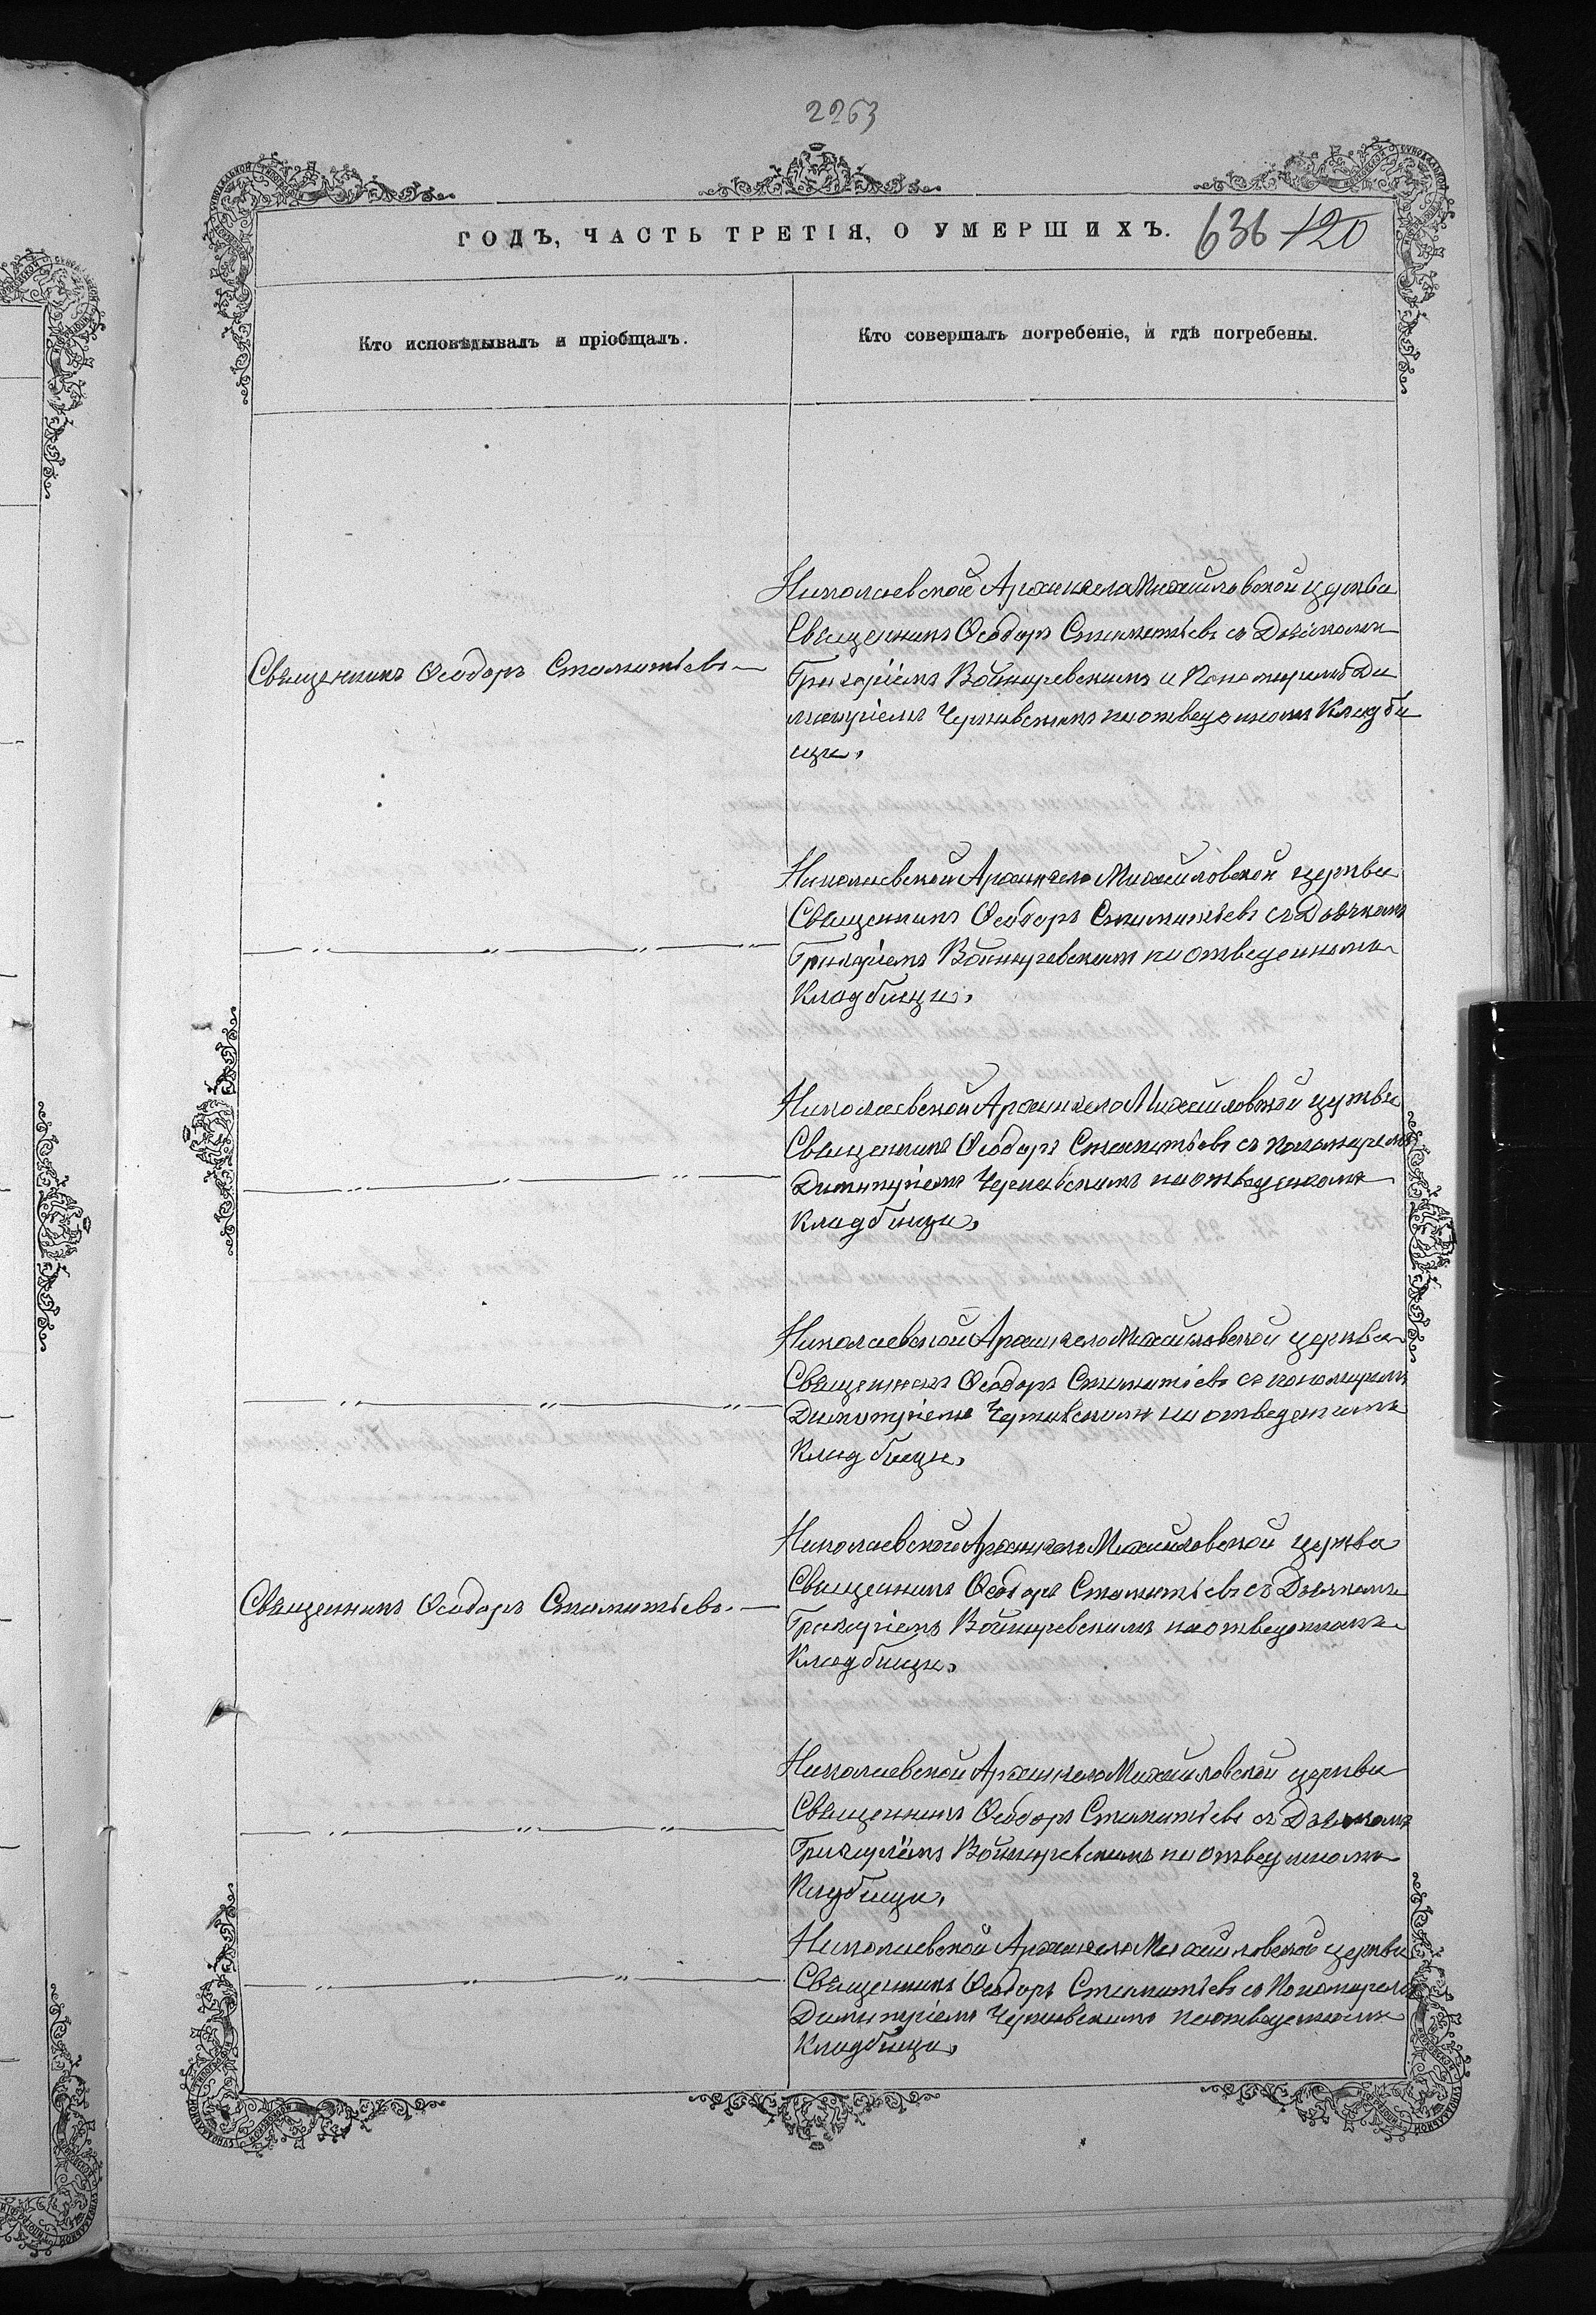 2263
ГОДЪ, ЧАСТЬ ТРЕТІЯ, О УМЕРШИХЪ. 636 120
Кто исповѣдывалъ и пріобщалъ.
Кто совершалъ погребеніе, и гдѣ погребены.
Николаевской Архангело Михайловской церкви
Священникъ Ѳеодоръ Стаматьевъ съ Дьячкомъ
Священникъ Ѳеодоръ Стаматьевъ
Григоріемъ Войнаревскимъ и Пономаремъ Ди
митріемъ Чернявскимъ на отведенномъ Кладби
щѣ.
Николаевской Архангело Михайловской церкви
Священникъ Ѳеодоръ Стаматьевъ съ Дьячкомъ
— „ — „ — „ — „ —
Григоріемъ Войнаревскимъ на отведенномъ
Кладбищѣ.
Николаевской Архангело Михайловской церкви
Священникъ Ѳеодоръ Стаматьевъ съ пономаремъ
— „ — „ — „ —
Димитріемъ Чернявскимъ на отведенномъ
Кладбищѣ.
Николаевской Архангело Михайловской церкви
Священникъ Ѳеодоръ Стаматьевъ съ пономаремъ
— „ — „ — „ —
Димитріемъ Чернявскимъ на отведенномъ
Кладбищѣ.
Николаевской Архангело Михайловской церкви
Священникъ Ѳеодоръ Стаматьевъ съ Дьячкомъ
Священникъ Ѳеодоръ Стаматьевъ.
Григоріемъ Войнаревскимъ на отведенномъ
Кладбищѣ.
Николаевской Архангело Михайловской церкви
Священникъ Ѳеодоръ Стаматьевъ съ Дьячкомъ
— „ — „ — „ —
Григоріемъ Войнаревскимъ на отведенномъ
Кладбищѣ.
Николаевской Архангело Михайловской церкви
Священникъ Ѳеодоръ Стаматьевъ съ Пономаремъ
— „ — „ — „ —
Димитріемъ Чернявскимъ на отведенномъ
Кладбищѣ.